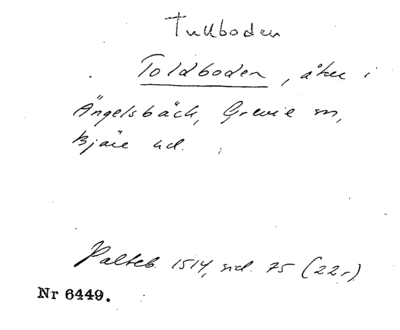 Tullboden
Toldboden, åker i
Ängelsbäck, Grevie sn,
Bjäre hd.
Palteb. 1514, sid. 75 (22r)
Nr 6449.